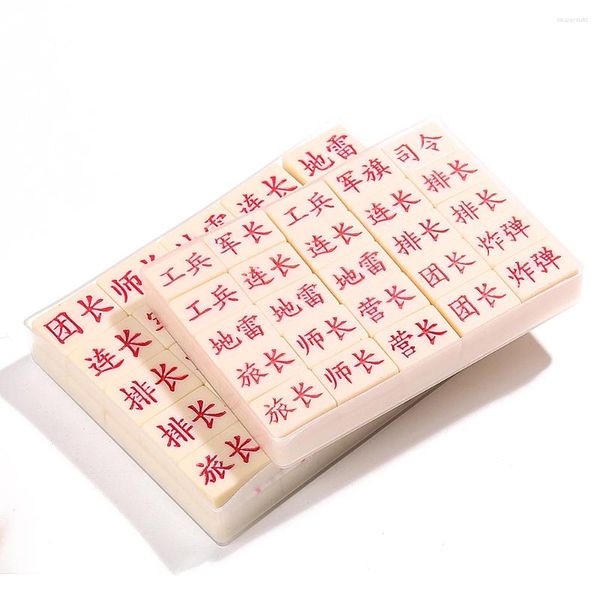 团长 师长 雷 连长 地雷
连长 军
排长
排长
旅长
工兵 军长 工兵 军旗 司令
工兵 连长 连长 连长 排长
地雷 地雷 地雷 排长 排长
旅长 师长 营长 团长 炸弹
旅长 师长 营长 团长 炸弹